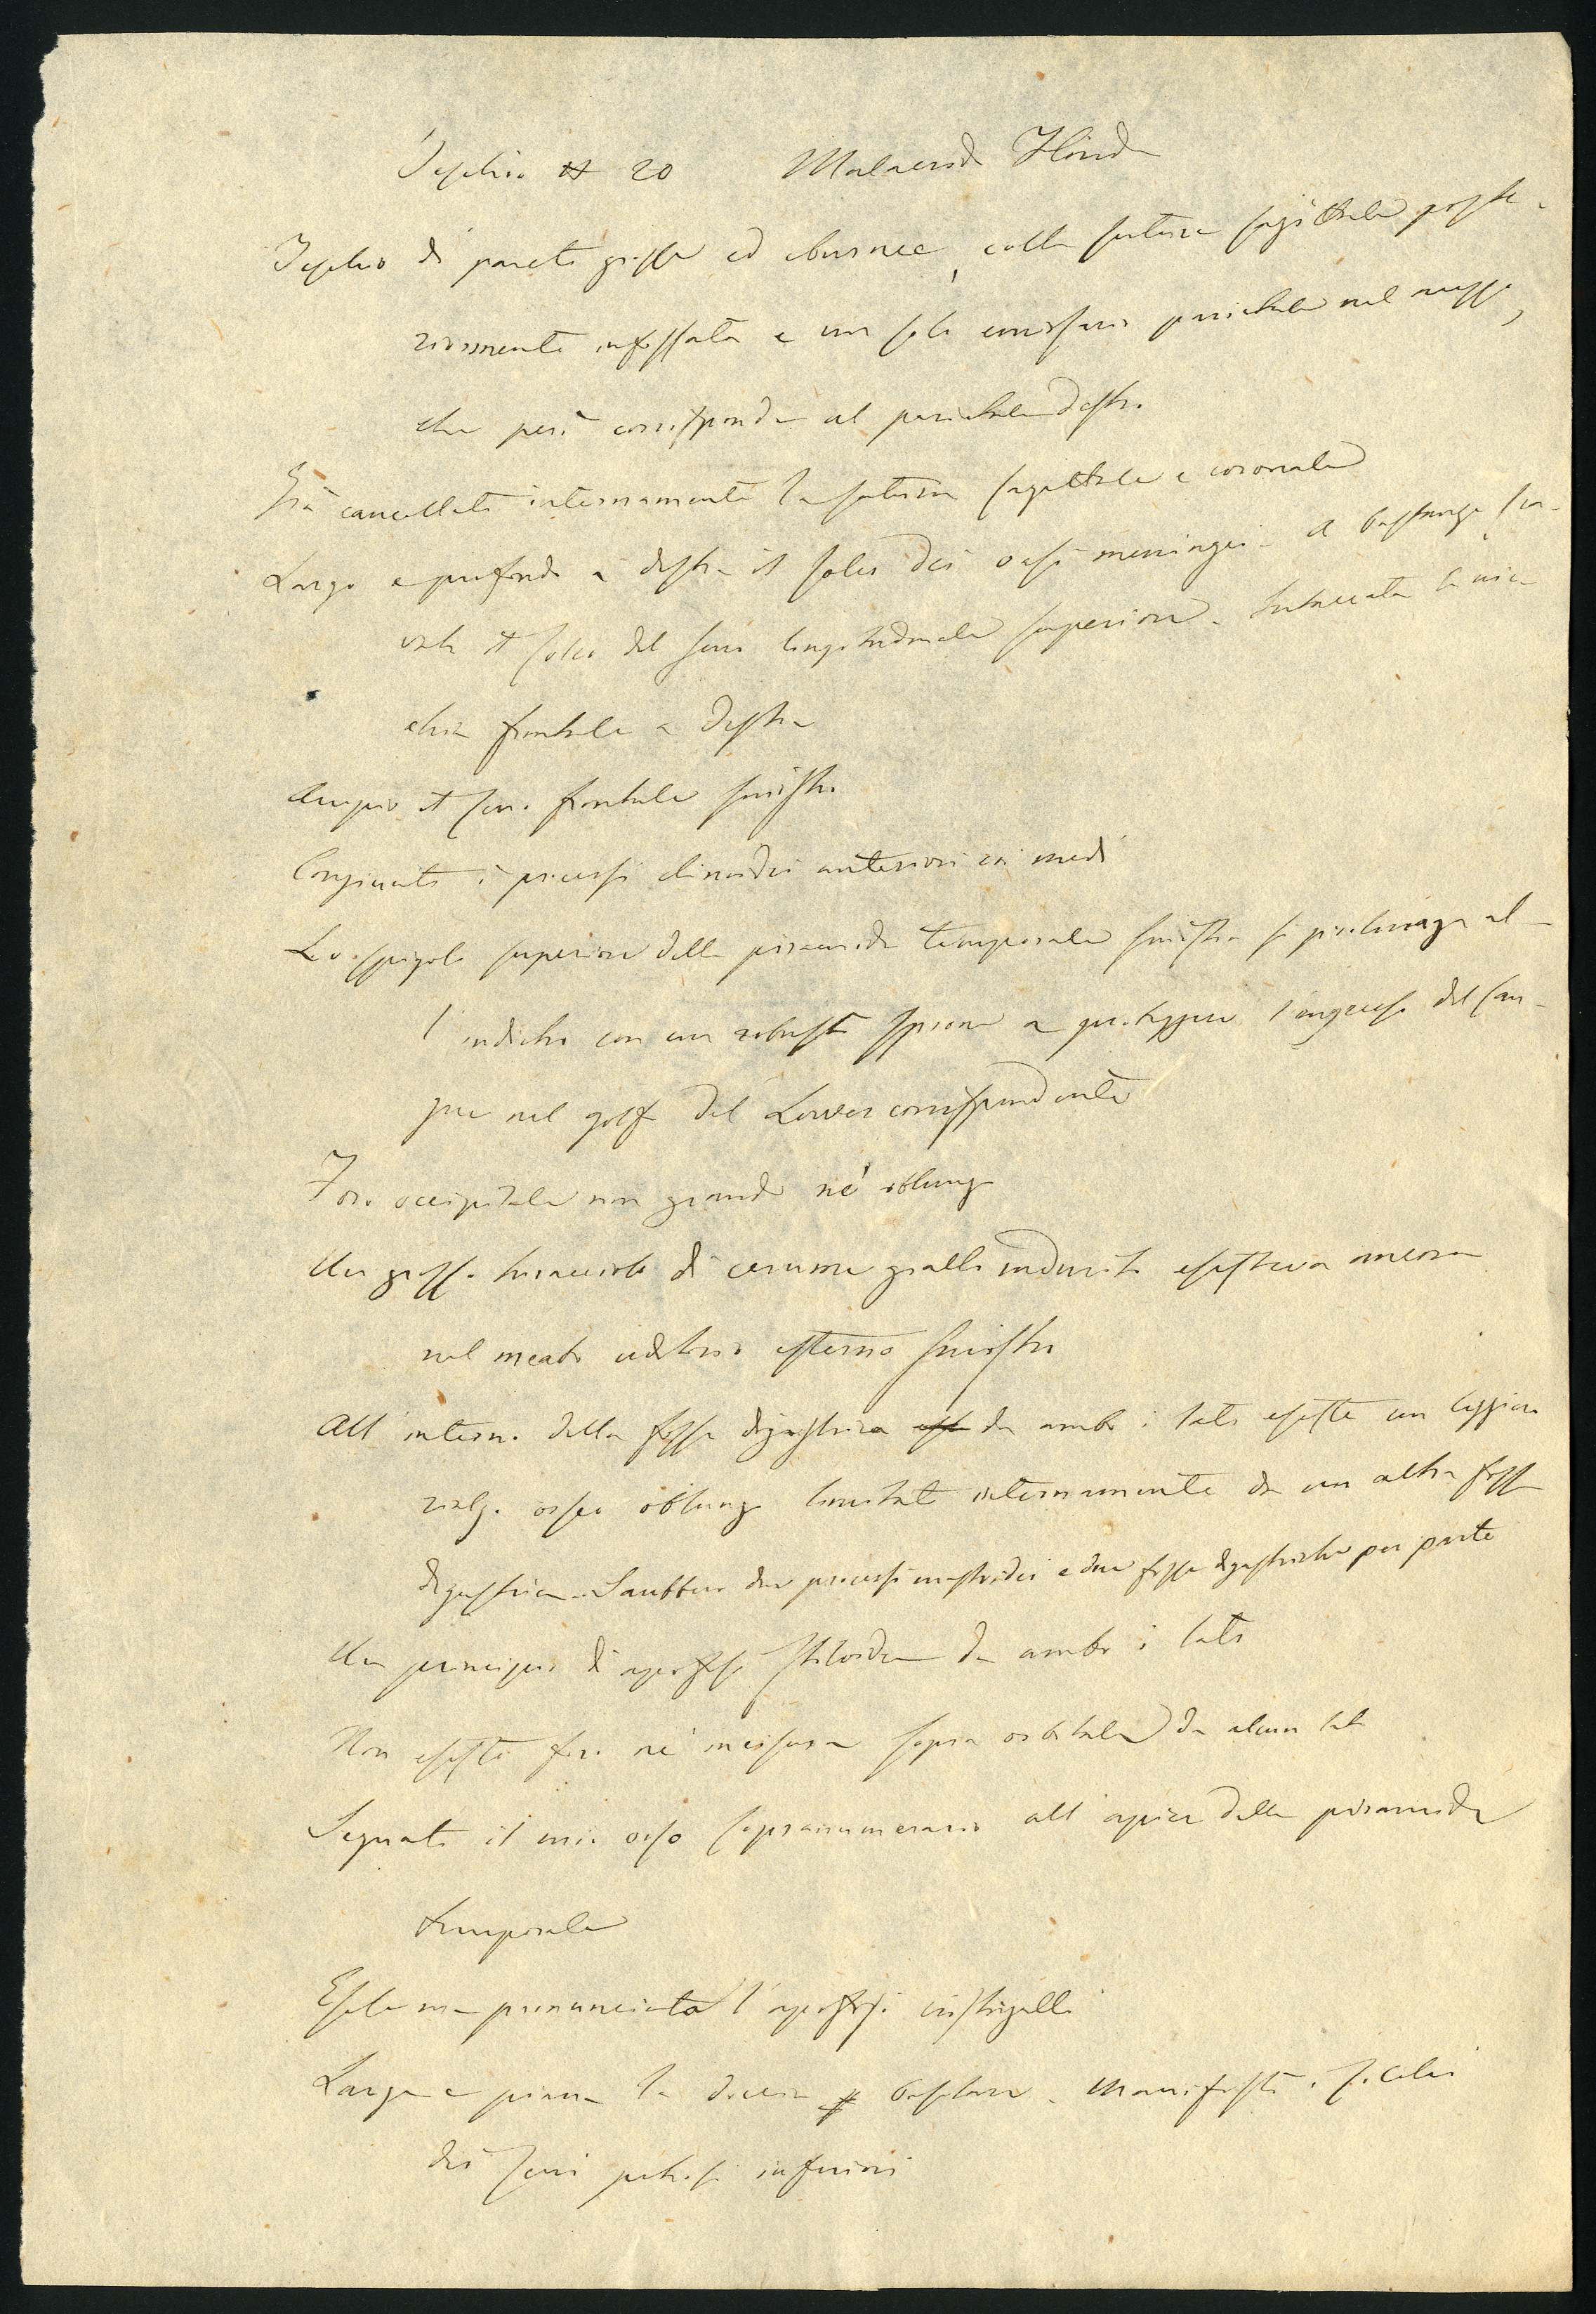 Teschio N 20 Malacrida Flirida
Teschio di pareti grosse ed eburnee, colla sutura sagittale poste-
riormente infossata e un solo emissario parietale nel mezzo,
che però corrisponde al parietale destro
Già cancellate internamente la sutura sagittale e coronale
Largo e profondo a destra il solco dei vasi meningei. A bastanza sca-
vato il solco del seno longitudinale superiore. Intaccata la nic-
chia frontale a destra
Ampio il seno frontale sinistro
Congiunti i processi clinoidei anteriori coi medi
Lo spigolo superiore della piramide temporale sinistra si prolunga al-
l'indietro con un robusto sprone a proteggere l'ingresso del san-
gue nel golfo del Lower corrispondente
Foro occipitale non grande né oblungo
Un grosso turacciolo di cerume giallo indurito esisteva ancora
nel meato uditorio esterno sinistro
All'interno della fossa digastrica da ambo i lati esiste un leggiero
rialzo osseo oblungo limitato internamente da un altra fossa
digastrica. Sarebbero due processi mastoidei e due fosse digastriche per parte
Un principio di apofisi stiloidea da ambo i lati
Non esiste foro né incisura sopra orbitale da alcun lato
Segnato il mio osso soprannumerario all'apice della piramide
temporale
Esile ma pronunciata l'apofisi cristagalli
Larga e piana la doccia basilare. Manifesti i solchi
dei seni petrosi inferiori